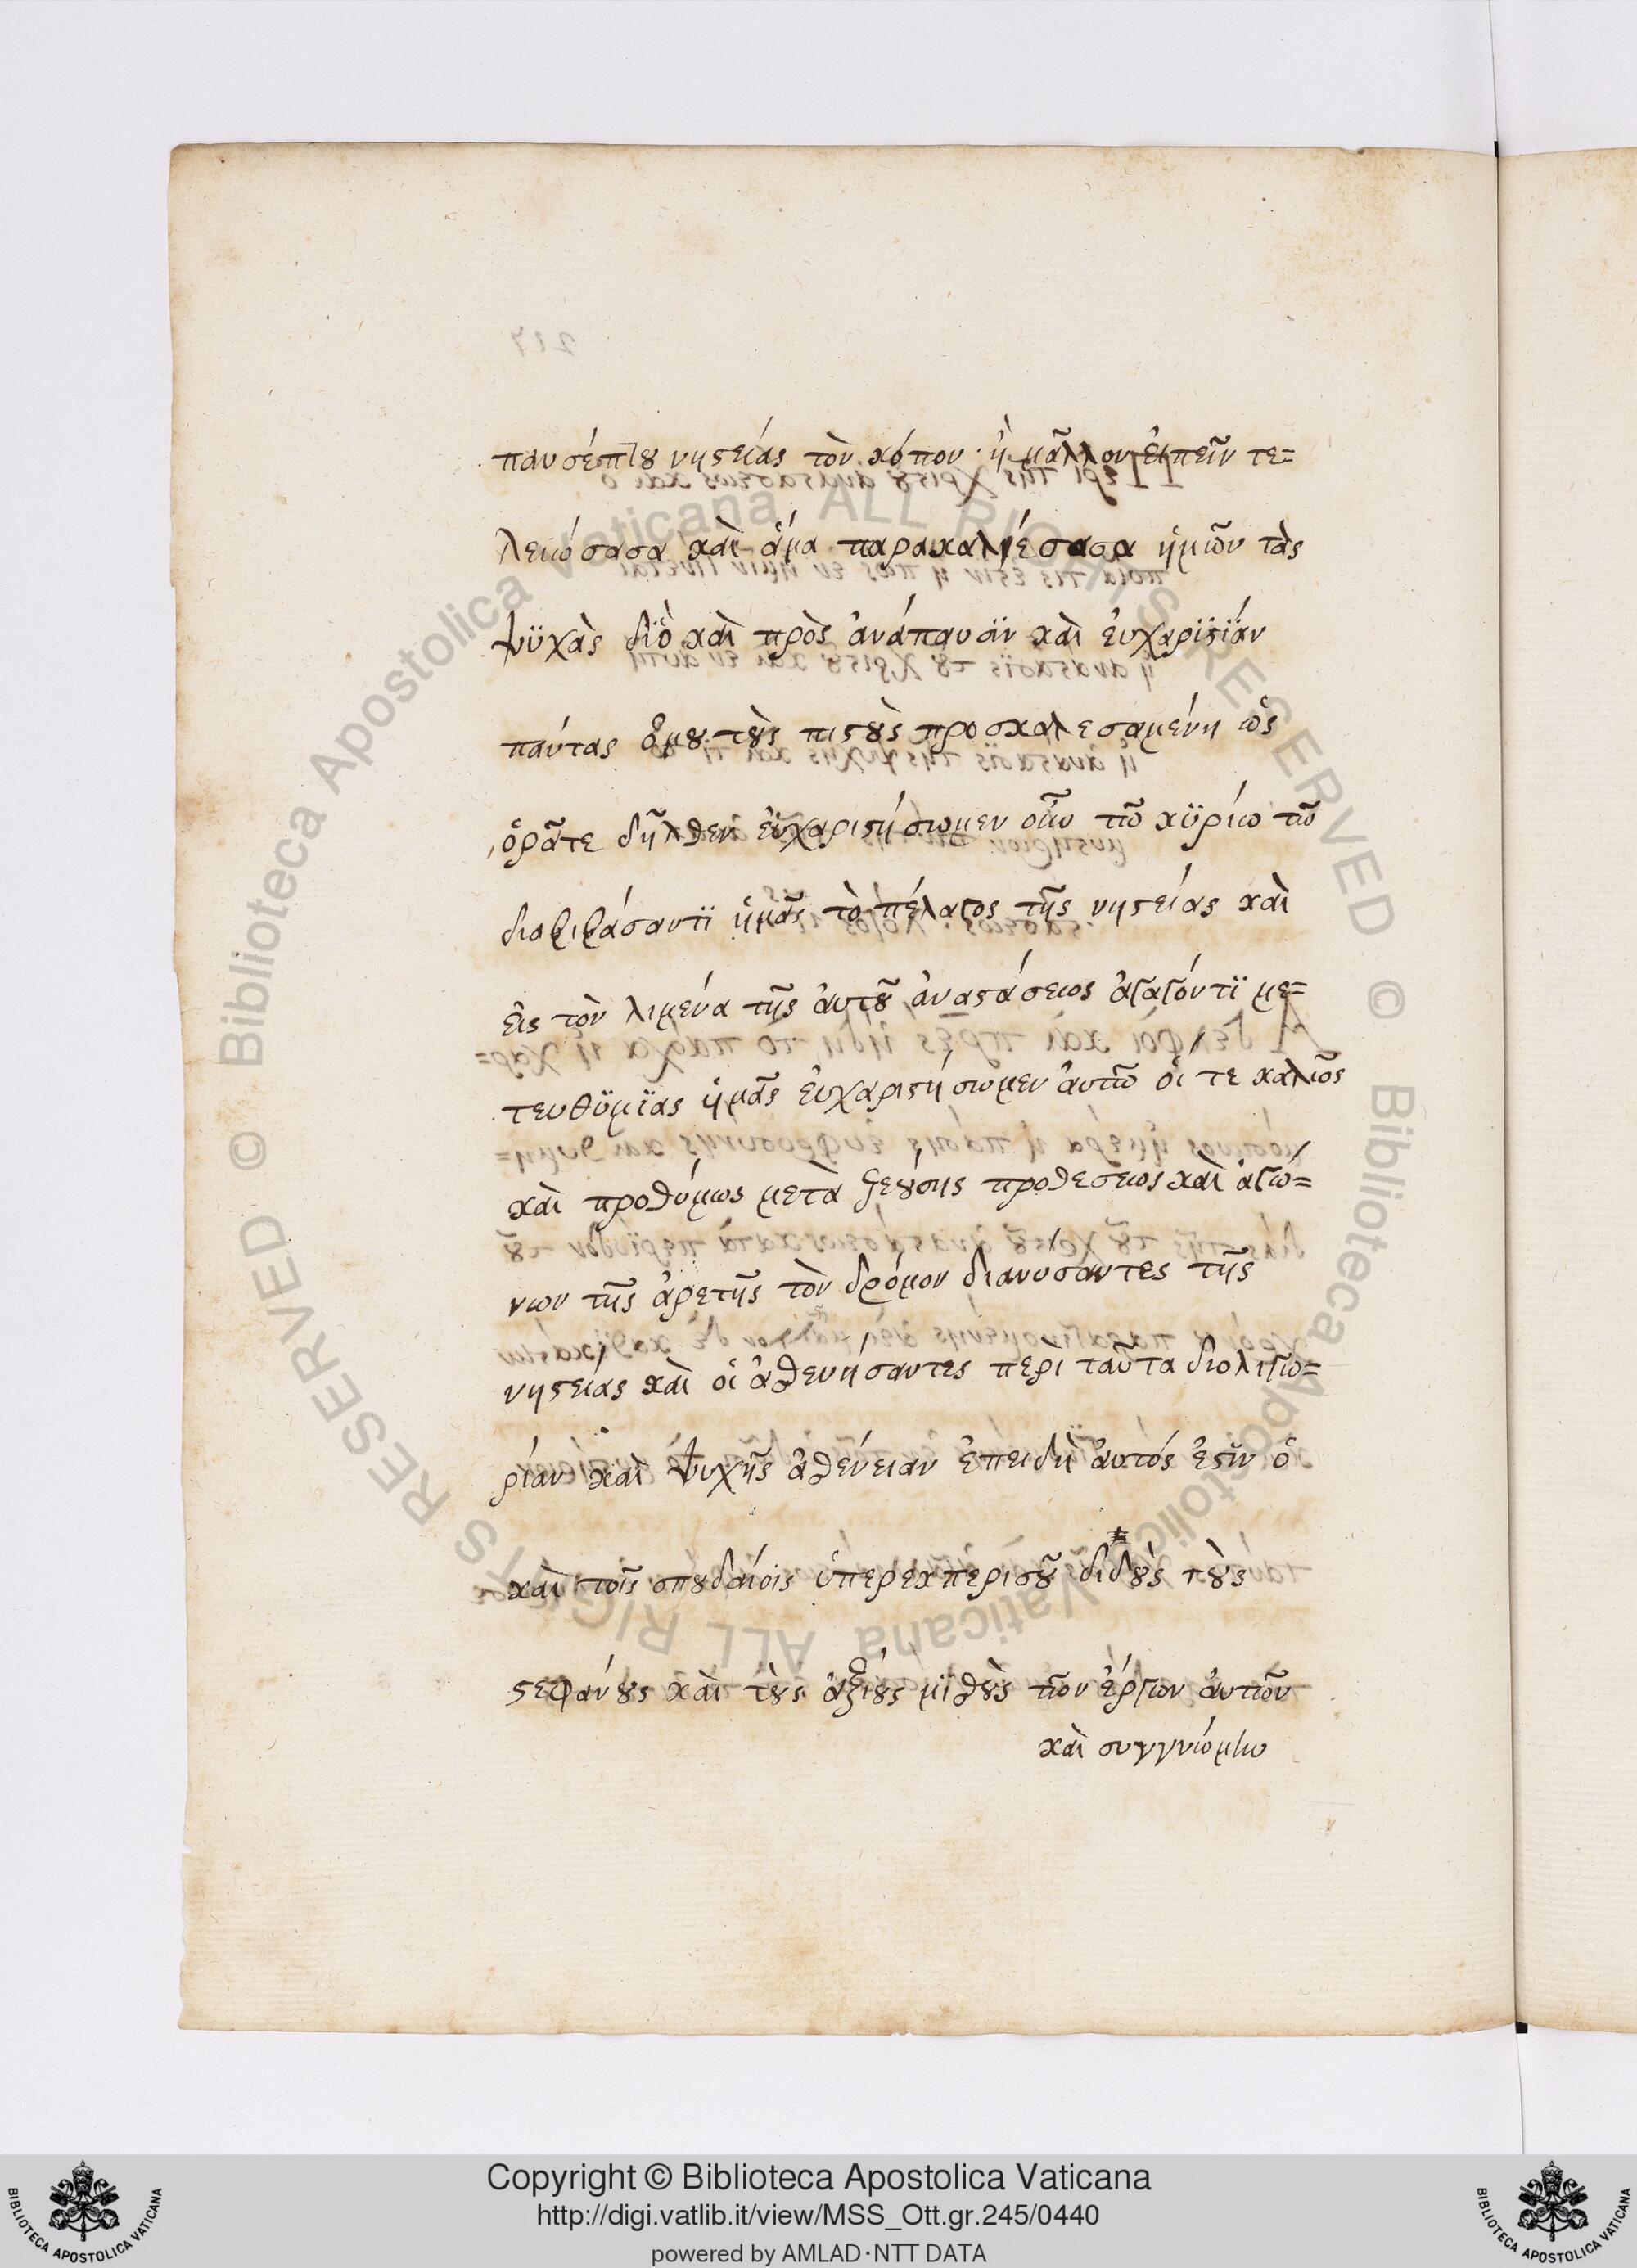 παυσέπτου νηστείας τὸν κόπον · ἢ μᾶλλον εἰπεῖν τε=
λειώσασα καὶ ἅμα παρακαλιέσασα ἡμῶν τὰς
ψϋχὰς δϊὸ καὶ πρὸς ἀνάπαυσϊν καὶ ἐυχαρϊστϊάν
πάντας ὁμοῦ τοὺς πιστοὺς προσκαλεσαμένη ὡς
ὁρᾶτε δῆλθεν ἐυχαριστήσωμεν οὖν τῶ κϋρίω τῶ
διαβιβάσαντϊ ἡμᾶς τὸ πέλαγος τῆς νηστείας καὶ
ἐις τὸν λιμένα τῆς ἀυτοῦ ἀναστάσεως ἀγαγόντϊ με=
τευθϋμϊας ἡμᾶς ἐυχαριστήσωμεν ἀυτῶ οἵ τε καλῶς
καὶ προθύμως μετὰ ζεούσης προθεσεως καὶ ἀγώ=
νων τῆς ἀρετῆς τὸν δρόμον διανυσαντες τῆς
νηστείας καὶ οἱ ἀσθενήσαντες περὶ ταῦτα διολιγω=
ρίαν καὶ ψυχῆς ἀσθένειαν ἐπειδὴ ἀυτός ἐστϊν ὁ
καὶ τοῖς σπουδαίοις ὑπερεκπερισοῦ διδοὺς τοὺς
στεφάνους καὶ τοὺς ἀξίους μϊσθοὺς τῶν ἔργων ἀυτῶν
καὶ συγγνώμην
217
Copyright © Biblioteca Apostolica Vaticana
http://digi.vatlib.it/view/MSS_Ott.gr.245/0440
powered by AMLAD·NTT DATA